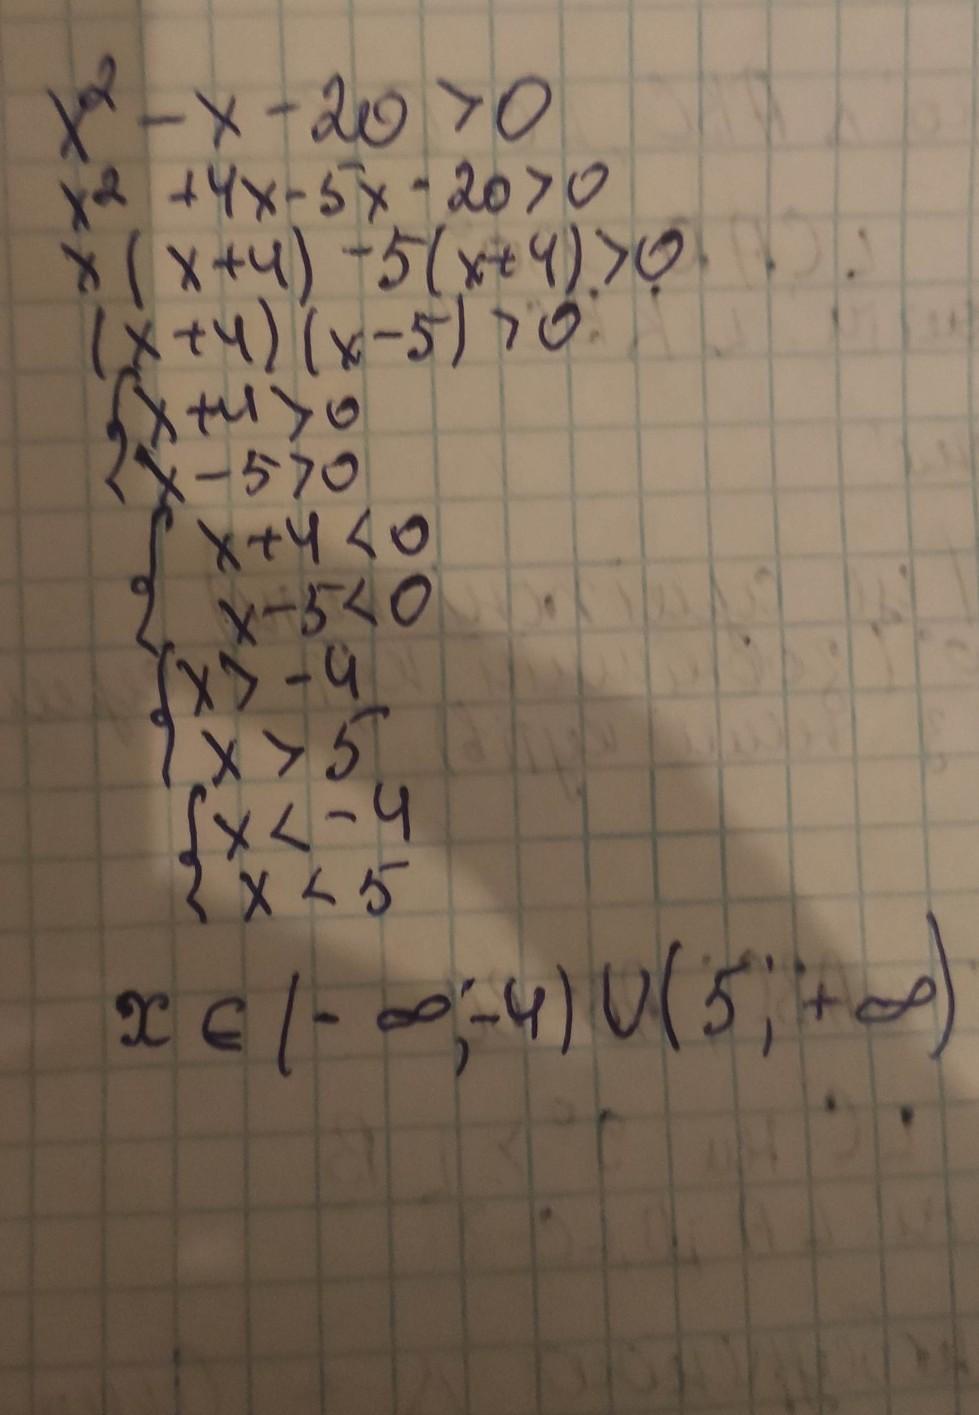 x² - x - 20 > 0
x² + 4x - 5x - 20 > 0
x(x+4) - 5(x+4) > 0
(x+4)(x-5) > 0
{ x+4 > 0
{ x - 5 > 0
{ x+4 < 0
{ x-5 < 0
{ x > -4
{ x > 5
{ x < -4
{ x < 5
x ∈ (-∞; -4) ∪ (5; +∞)